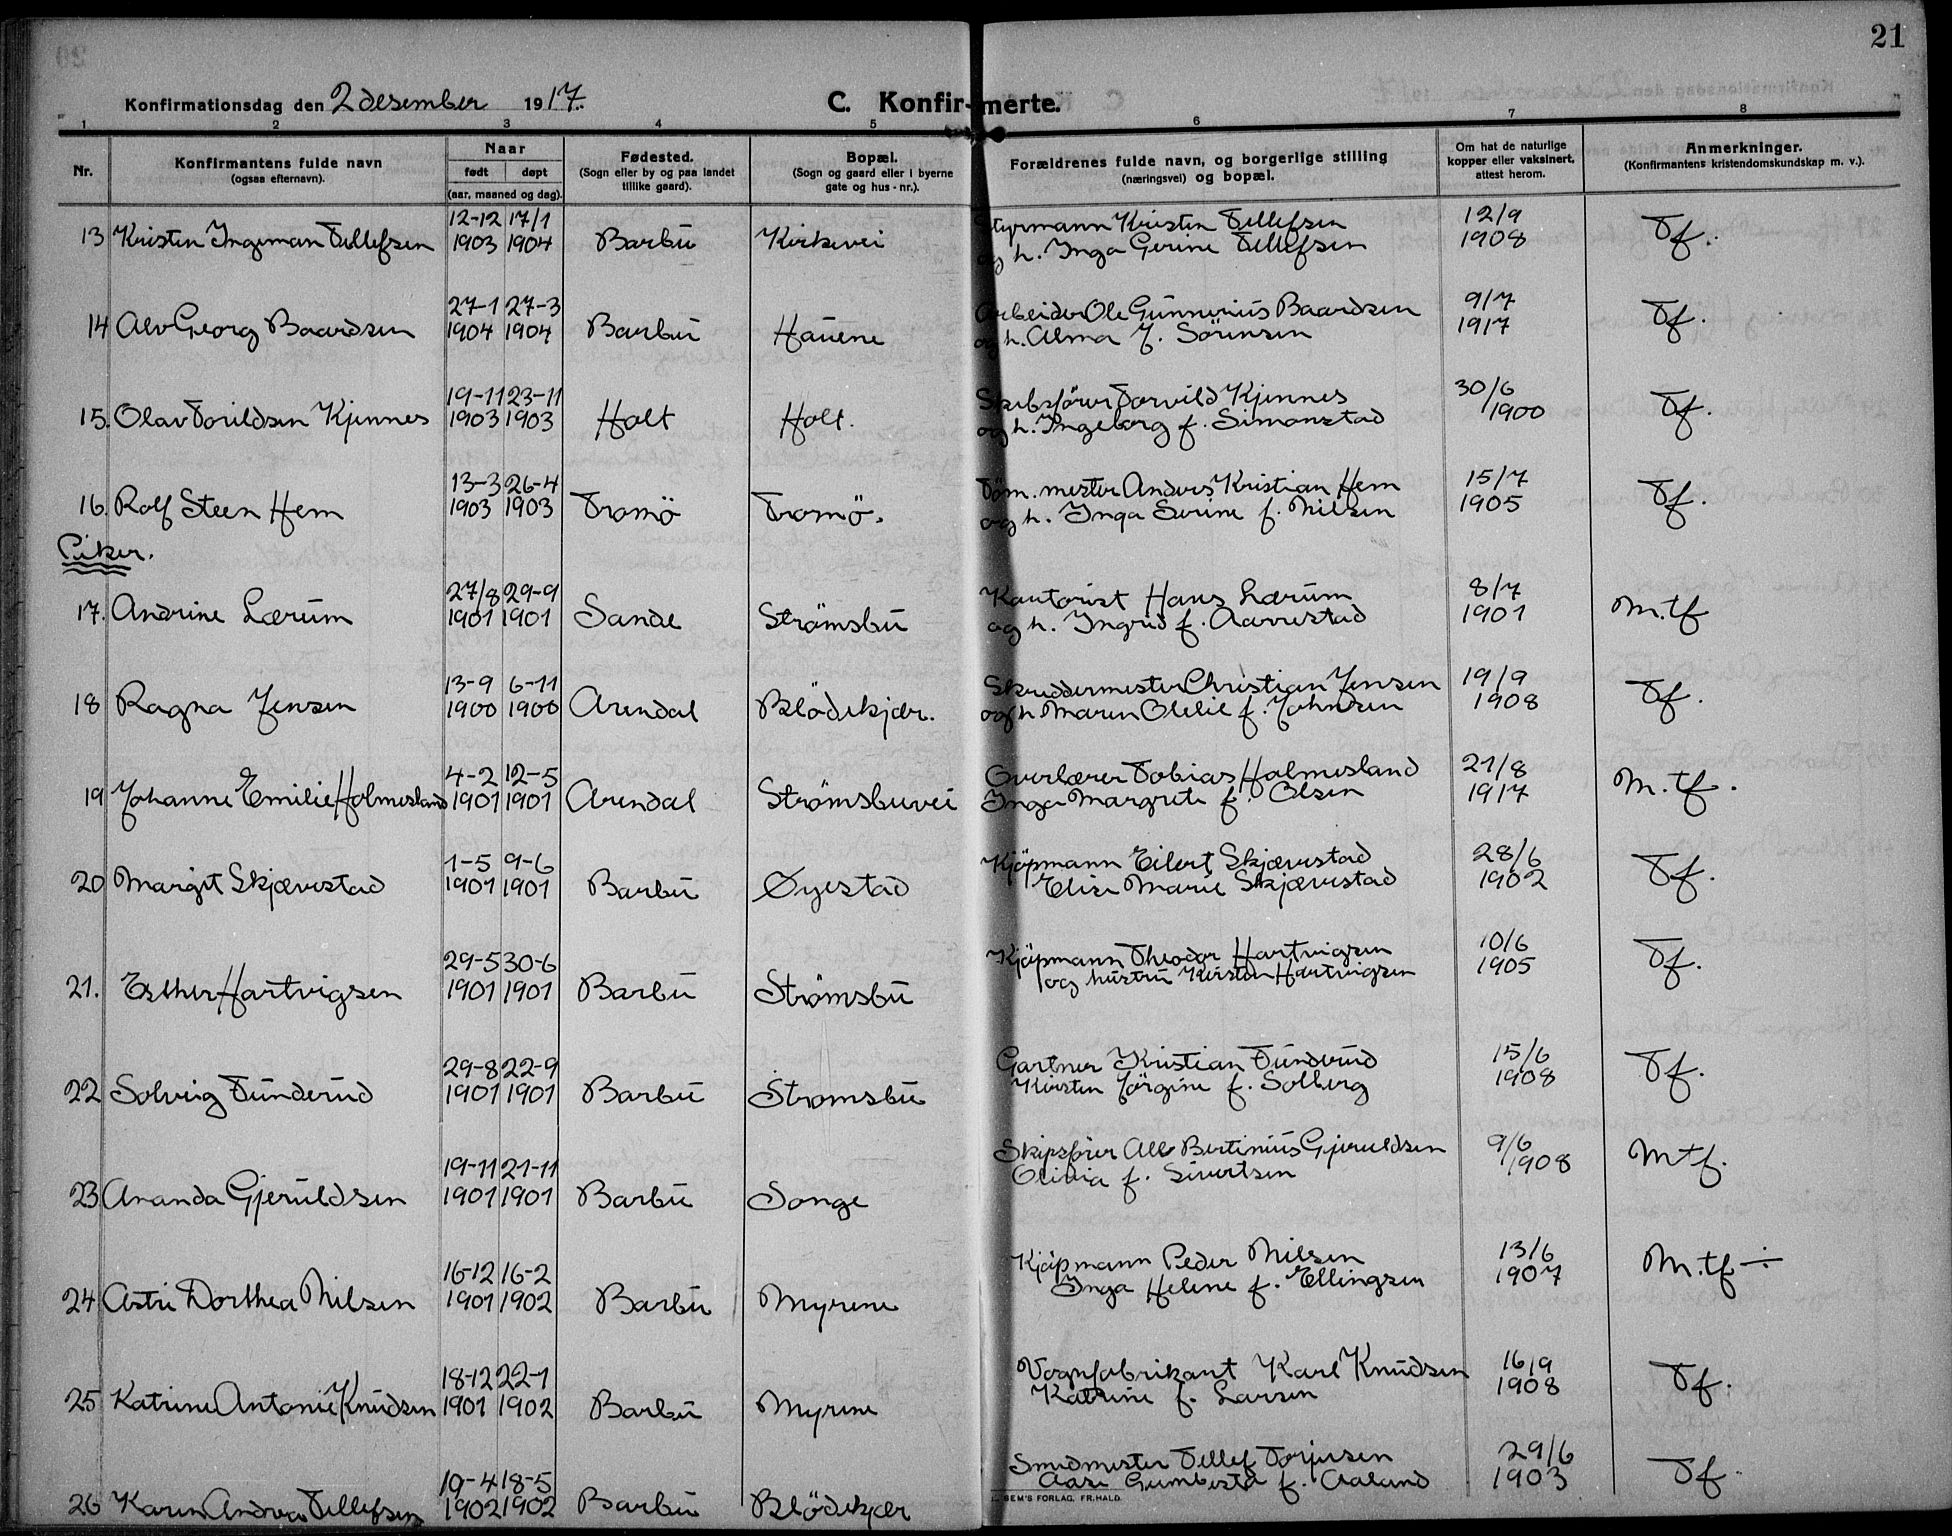 21
Konfirmationsdag den 2 desember 1917.
C. Konfir-merte.
1 2 3 4 5 6 7 8
Nr.
Konfirmantens fulde navn
(ogsaa efternavn).
Naar
født døpt
(aar, maaned og dag).
Fødested.
(Sogn eller by og paa landet
tillike gaard).
Bopæl.
(Sogn og gaard eller i byerne
gate og hus-nr.).
Forældrenes fulde navn, og borgerlige stilling
(næringsvei) og bopæl.
Om hat de naturlige
kopper eller vaksinert,
attest herom.
Anmerkninger.
(Konfirmantens kristendomskundskap m. v.).
12-12 17/1 Styrmann Kristen Tellefsen 12/9
13 Kristen Ingeman Tellefsen 1903 1904 Barbu Kirkevei og h. Inga Gerine Tellefsen 1908 Tf.
27-1 27-3 Arbeider Ole Gunnerius Baardsen 9/7
14 Alv Georg Baardsen 1904 1904 Barbu Hauene og h. Alma f. Sörensen 1917 Tf.
19-11 23-11 Skibsförer Torvild Kjennes 30/6
15. Olav Torildsen Kjennes 1903 1903 Holt Holt. og h. Ingeborg f. Simonstad 1900 Tf.
13-3 26-4 Töm. mester Anders Kristian Hem 15/7
16. Rolf Steen Hem 1903 1903 Tromö Tromö. og h. Inga Serine f. Nilsen 1905 Tf.
Piker.
27/8 29-9 Kontorist Hans Lærum 8/7
17. Andrine Lærum 1901 1901 Sande Strömsbu og h. Ingrid f. Aarrestad 1901 M.tf
13-9 6-11 Skreddermester Christian Jensen 19/9
18 Ragna Jensen 1900 1900 Arendal Blödekjær. og h. Maren Olelie f. Johnsen 1908 Tf.
4-2 12-5 Overlærer Tobias Holmesland 21/8
19 Johanne Emilie Holmesland 1901 1901 Arendal Strömsbuvei Inga Margrete f. Olsen 1917 M.tf.
1-5 9-6 Kjöpmann Eilert Skjævestad 28/6
20 Margit Skjævestad 1901 1901 Barbu Øyestad Elise Marie Skjævestad 1902 Tf.
29-5 30-6 Kjöpmann Theodor Hartvigsen 10/6
21. Esther Hartvigsen 1901 1901 Barbu Strömsbu og hustru Kirsten Hartvigsen 1905 Tf.
29-8 22-9 Gartner Kristian Tunderud 15/6
22 Solveig Tunderud 1901 1901 Barbu Stromsbu Kirsten Jörgine f. Solberg 1908 Tf.
19-11 21-11 Skipsfører Alb Bertinius Gjeruldsen 9/6
23 Ananda Gjeruldsen 1901 1901 Barbu Songe Olivia f. Sivertsen 1908 Mtf.
16-12 16-2 Kjöpmann Peder Nilsen 13/6
24 Astri Dorthea Nilsen 1901 1902 Barbu Myrene Inga Helene f. Ellingsen 1907 M.tf÷
18-12 22-1 Vognfabrikant Karl Knudsen 16/9
25 Katrine Antonie Knudsen 1901 1902 Barbu Myrene Katrine f. Larsen 1908 Tf.
19-4 18-5 Smedmester Tellef Torjusen 29/6
26 Karen Andrea Tellefsen 1902 1902 Barbu Blödekjær Aase f. Aaland 1903 Tf.
SEM'S FORLAG, FR.HALD.